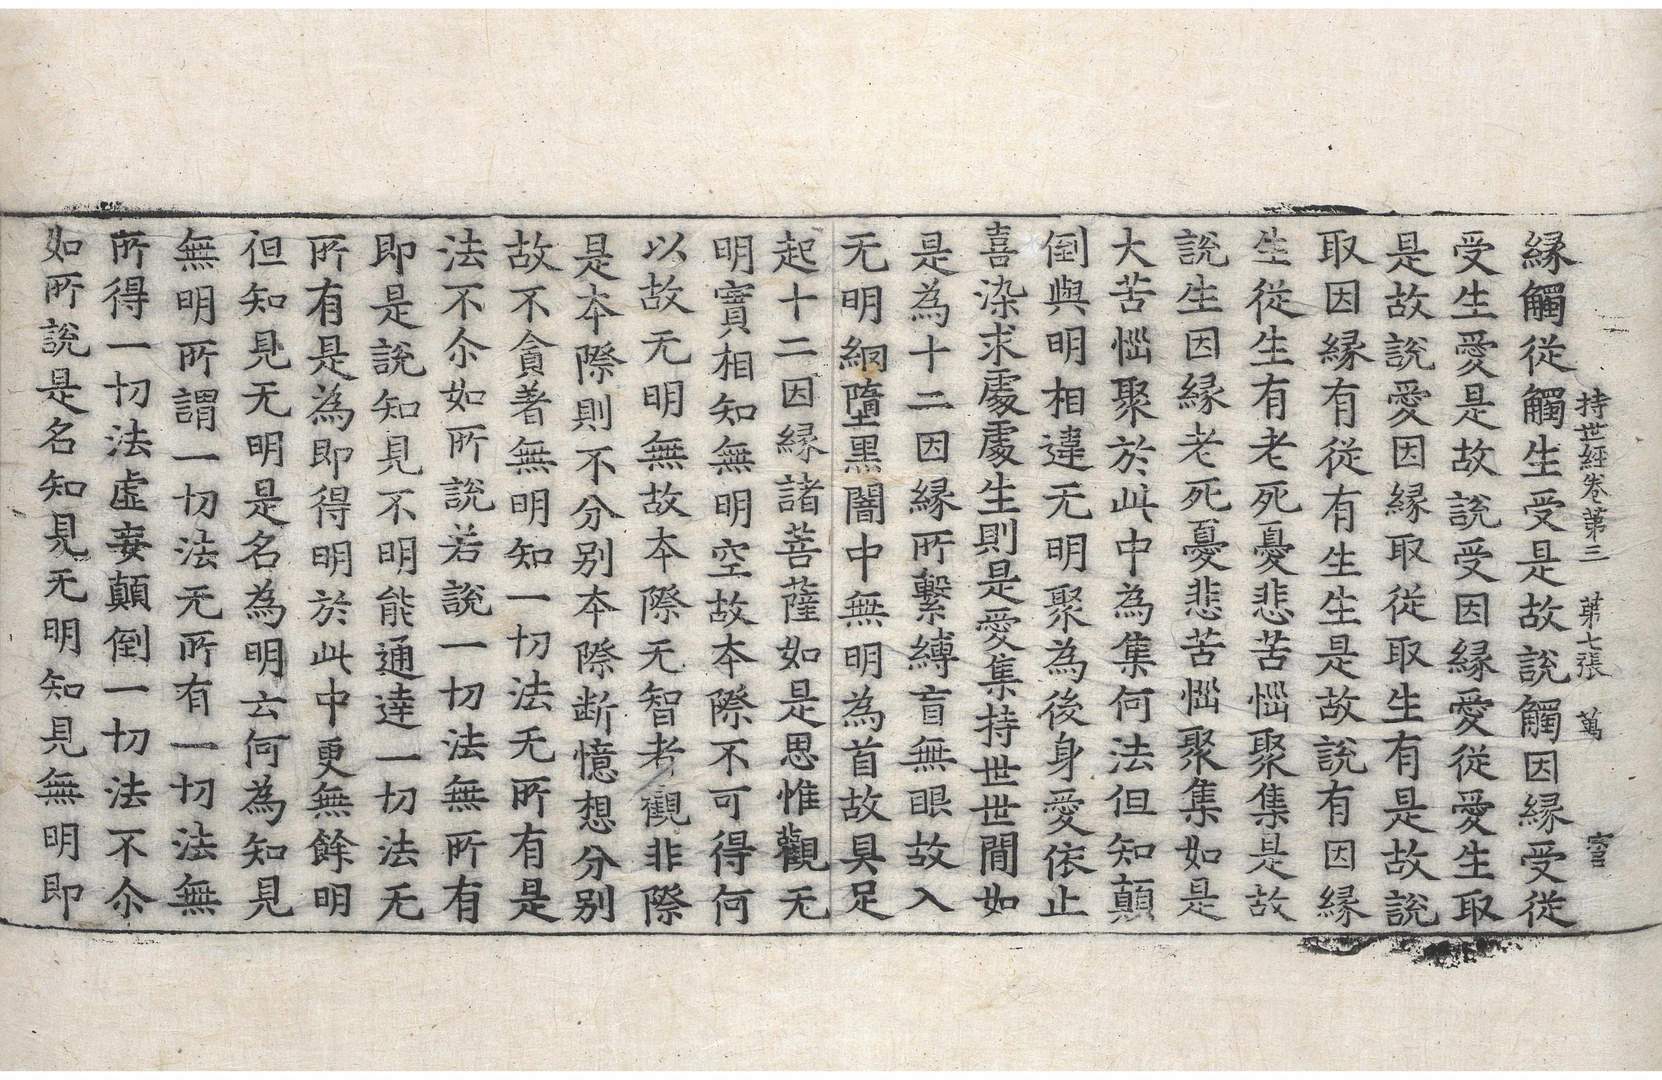 持世經卷第三 第七張 萬
縁觸從觸生受是故說觸因縁受從
受生愛是故說受因縁愛從愛生取
是故說愛因縁取從取生有是故說
取因縁有從有生生是故說有因縁
生從生有老死憂悲苦惱聚集是故
說生因縁老死憂悲苦惱聚集如是
大苦惱聚於此中為集何法但知顛
倒與明相違无明聚為後身愛依止
喜染求處處生則是愛集持世世間如
是為十二因縁所繫縛盲無眼故入
无明網墮黒闇中無明為首故具足
起十二因縁諸菩薩如是思惟觀无
明實相知無明空故本際不可得何
以故无明無故本際无智者觀非際
是本際則不分别本際断憶想分别
故不貪著無明知一切法无所有是
法不尒如所說若說一切法無所有
即是說知見不明能通達一切法无
所有是為即得明於此中更無餘明
但知見无明是名為明云何為知見
無明所謂一切法无所有一切法無
所得一切法虛妄顛倒一切法不尒
如所說是名知見无明知見無明即